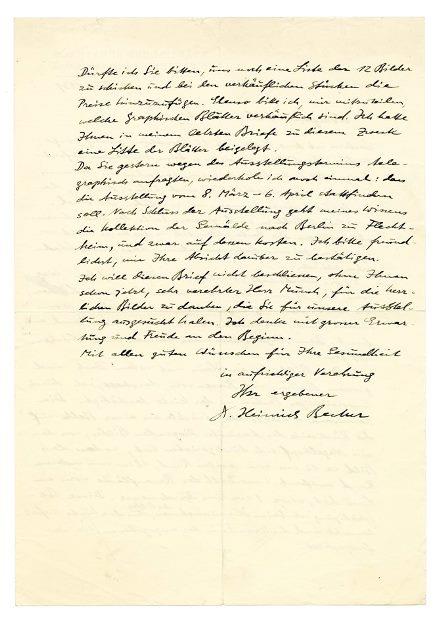 Dürfte ich Sie bitten, uns noch eine Liste der 12 Bilder
zu schicken und bei den verkäuflichen Stücken die
Preise hinzuzufügen. Ebenso bitte ich, mir mitzuteilen,
welche Graphischen Blätter verkäuflich sind. Ich hatte
Ihnen in meinem letzten Briefe zu diesem Zweck
eine Liste der Blätter beigelegt.
Da Sie gestern wegen des Ausstellungstermins tele-
graphisch anfragten, wiederhole ich noch einmal: dass
die Ausstellung vom 8. März – 6. April stattfinden
soll. Nach Schluss der Ausstellung geht meines Wissens
die Kollektion der Gemälde nach Berlin zu Flecht-
heim, und zwar auf dessen Kosten. Ich bitte freund-
lichst, mir Ihre Absicht darüber zu bestätigen.
Ich will diesen Brief nicht beschliessen, ohne Ihnen
schon jetzt, sehr verehrter Herr Munch, für die herr-
lichen Bilder zu danken, die Sie für unsere Ausstel-
lung ausgesucht haben. Ich denke mit grosser Erwar-
tung und Freude an den Beginn.
Mit allen guten Wünschen für Ihre Gesundheit
in aufrichtiger Verehrung
Ihr ergebener
Heinrich Becker